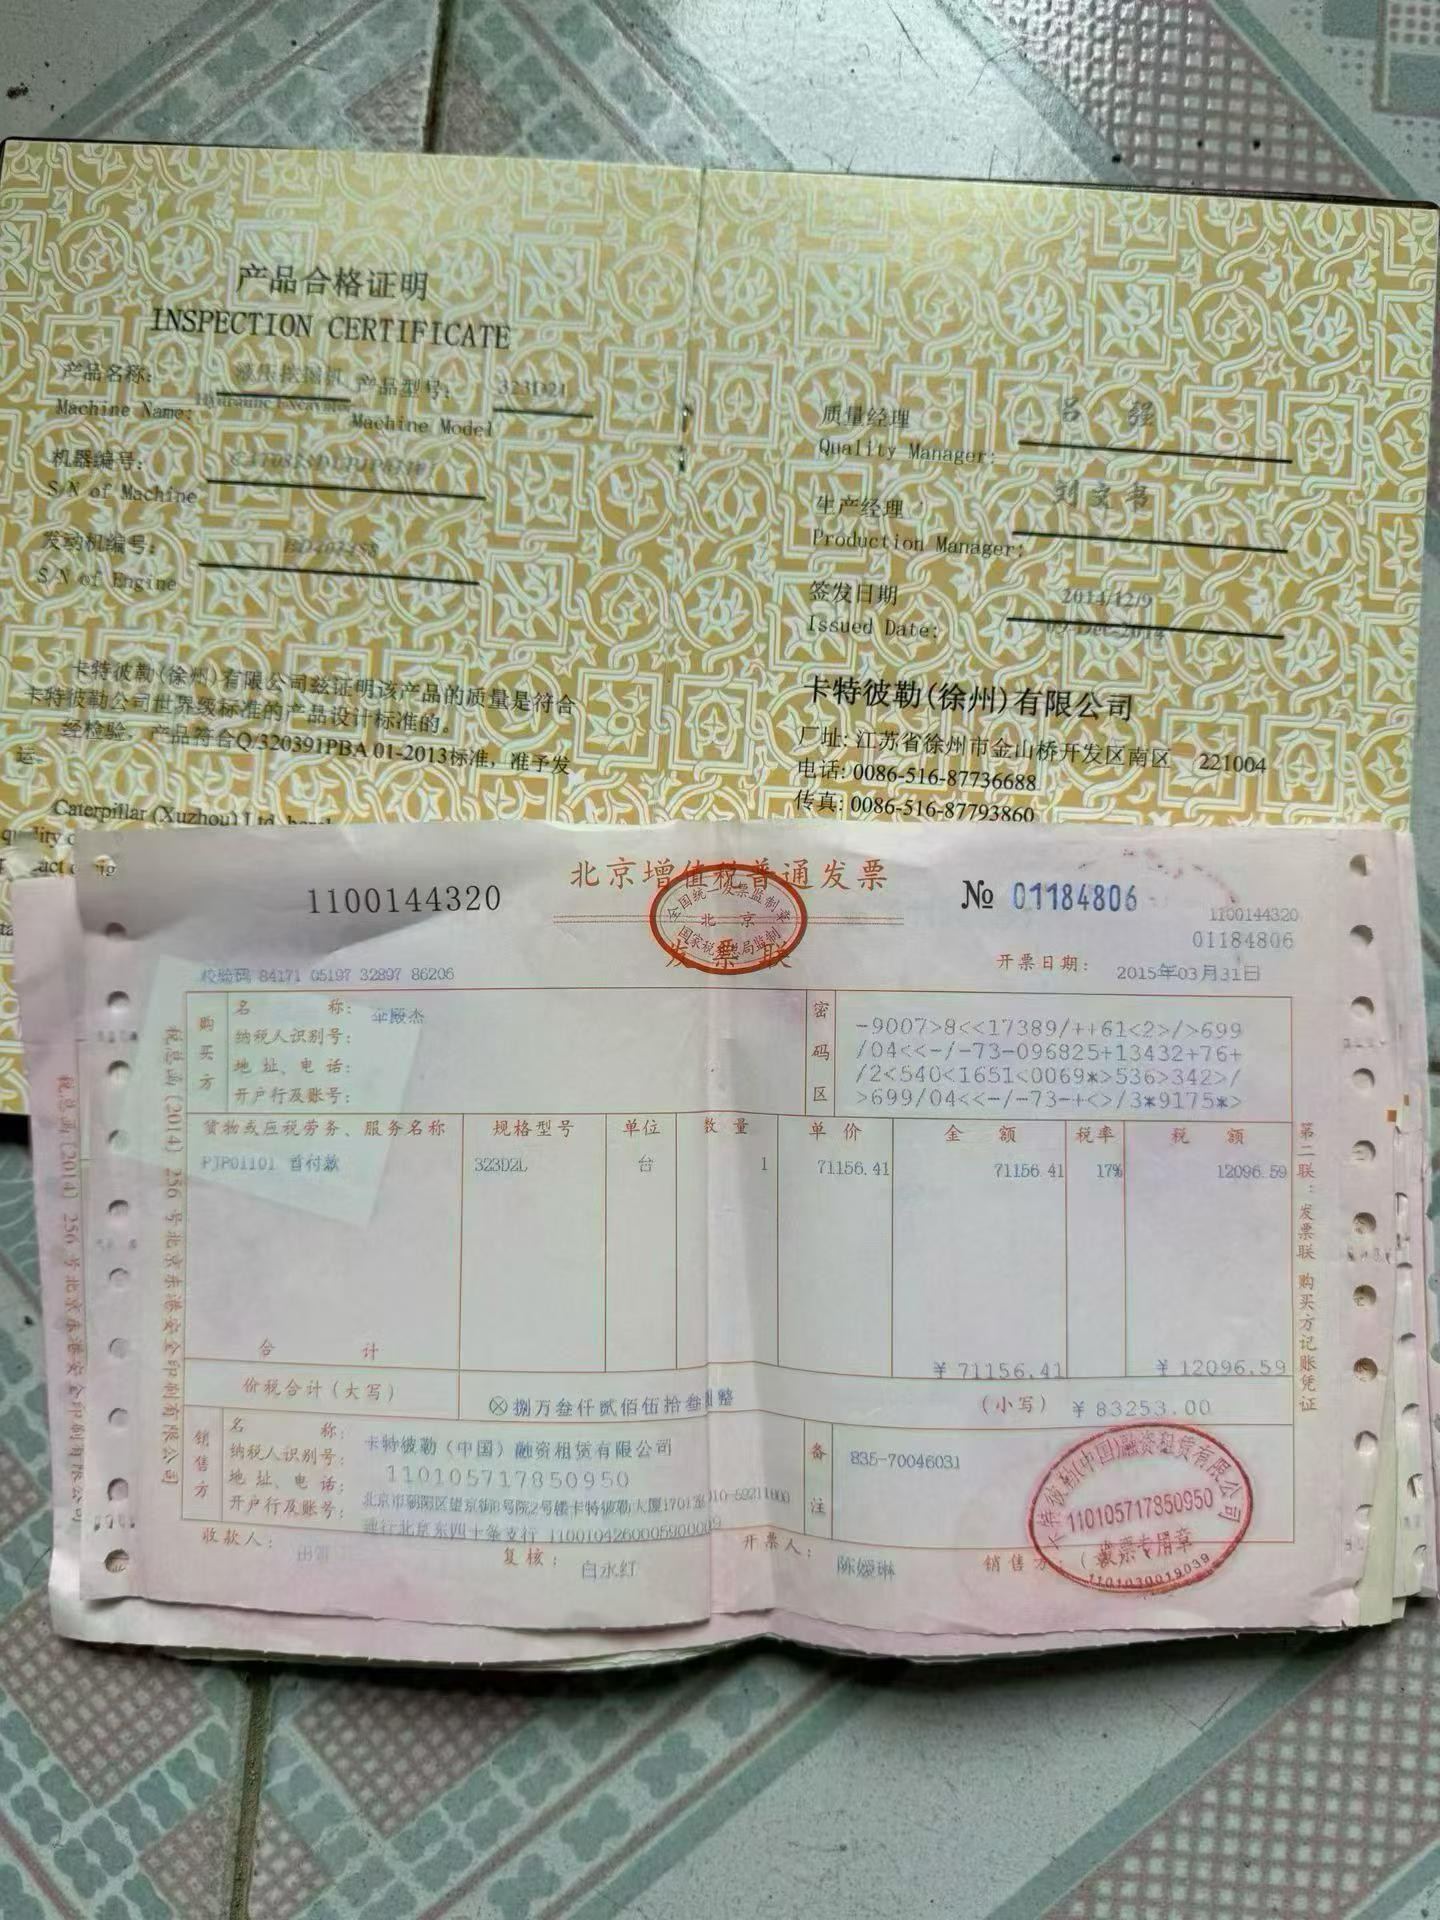 产品合格证明
INSPECTION CERTIFICATE
产品名称: 液压挖掘机 产品型号: 323D2L
Machine Name: Hydraulic Excavator Machine Model
机器编号:
S/N of Machine
发动机编号:
S/N of Engine
卡特彼勒(徐州)有限公司兹证明该产品的质量是符合
卡特彼勒公司世界级标准的产品设计标准的。
经检验，产品符合Q/320391PBA 01-2013标准，准予发
运.
Caterpillar (Xuzhou) Ltd.
质量经理 吕 强
Quality Manager:
生产经理 刘文书
Production Manager:
签发日期 2014/12/9
Issued Date: 09-Dec-2014
卡特彼勒(徐州)有限公司
厂址: 江苏省徐州市金山桥开发区南区 221004
电话: 0086-516-87736688
传真: 0086-516-87793860
1100144320
北京增值税普通发票
全国统一发票监制章
北 京
国家税务总局监制
发票联
№ 01184806
1100144320
01184806
校验码 84171 05197 32897 86206
开票日期: 2015年03月31日
购买方
名 称:
纳税人识别号:
地 址、电 话:
开户行及账号:
密码区
-9007>8<<17389/++61<2>/>699
/04<<-/-73-096825+13432+76+
/2<540<1651<0069*>536>342>/
>699/04<<-/-73-+<>/3*9175*>
货物或应税劳务、服务名称 规格型号 单位 数 量 单 价 金 额 税率 税 额
PJP01101 首付款 323D2L 台 1 71156.41 71156.41 17% 12096.59
合 计 ¥71156.41 ¥12096.59
价税合计(大写) ⊗捌万叁仟贰佰伍拾叁圆整 (小写) ¥83253.00
销售方
名 称: 卡特彼勒（中国）融资租赁有限公司
纳税人识别号: 110105717850950
地 址、电 话: 北京市朝阳区望京街8号院2号楼卡特彼勒大厦1701室
开户行及账号:
备注
835-70046031
卡特彼勒(中国)融资租赁有限公司
110105717850950
发票专用章
1101030019039
收款人:
复核: 白水红
开票人: 陈嫒琳
销售方: (章)
税总函〔2014〕256号北京东港安全印刷有限公司
税总函〔2014〕256号北京东港安全印刷有限公司
第二联：发票联 购买方记账凭证